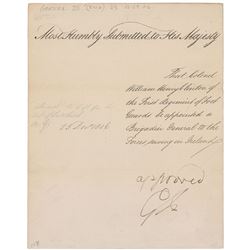 Most Humbly Submitted to His Majesty
That Colonel
William Henry Clinton of
the First Regiment of Foot
Guards be appointed a
Brigadier General to the
Forces serving in Ireland
approved
GR